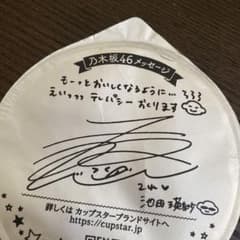 乃木坂46メッセージ
もーっとおいしくなるように…ろろろ
えいっっっテレパシーおくります
てれ♥
池田瑛紗
詳しくは カップスターブランドサイトへ
https://cupstar.jp